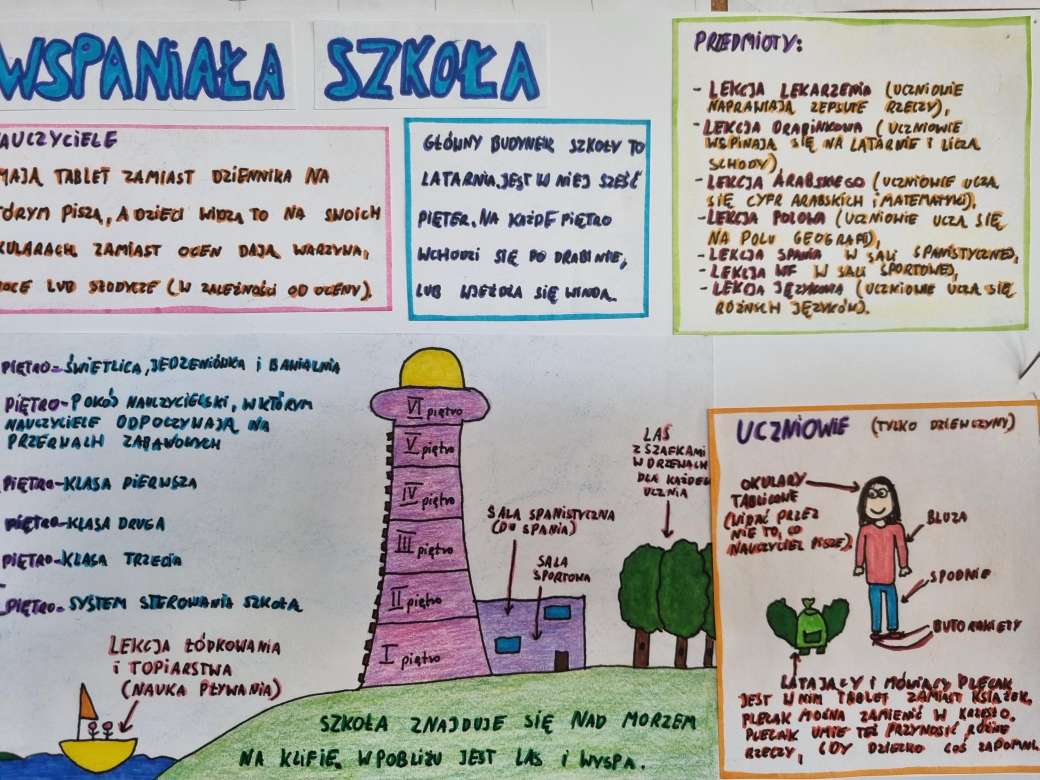 WSPANIAŁA SZKOŁA
AUCZYCIELE
MAJĄ TABLET ZAMIAST DZIENNIKA NA
TÓRYM PISZĄ, A DZIECI WIDZĄ TO NA SWOICH
KULARACH ZAMIAST OCEN DAJĄ WARZYWA,
OCE LUB SŁODYCZE (W ZALEŻNOŚCI OD OCENY).
GŁÓWNY BUDYNEK SZKOŁY TO
LATARNIA, JEST W NIEJ SZEŚĆ
PIĘTER. NA KAŻDE PIĘTRO
WCHODZI SIĘ PO DRABINIE,
LUB WJEŻDŻA SIĘ WINDĄ.
PRZEDMIOTY:
- LEKCJA LEKARZENIA (UCZNIOWIE
NAPRAWIAJĄ ZEPSUTE RZECZY),
- LEKCJA DRABINKOWA (UCZNIOWIE
WSPINAJĄ SIĘ NA LATARNIE I LICZĄ
SCHODY)
- LEKCJA ARABSKIEGO (UCZNIOWIE UCZĄ
SIĘ CYFR ARABSKICH i MATEMATYKI),
- LEKCJA POLOWA (UCZNIOWIE UCZĄ SIĘ
NA POLU GEOGRAFI),
- LEKCJA SPANIA W SALI SPANISTYCZNEJ,
- LEKCJA WF W SALI SPORTOWEJ,
- LEKCJA JĘZYKOWA (UCZNIOWIE UCZĄ SIĘ
RÓŻNYCH JĘZYKÓW).
PIĘTRO-ŚWIETLICA, JEDZENIÓWKA i BAWIALNIA
PIĘTRO-POKÓJ NAUCZYCIELSKI, W KTÓRYM
NAUCZYCIELE ODPOCZYWAJĄ NA
PRZERWACH ZABAWOWYCH
PIĘTRO-KLASA PIERWSZA
PIĘTRO-KLASA DRUGA
PIĘTRO-KLASA TRZECIA
PIĘTRO-SYSTEM STEROWANIA SZKOŁĄ
VI piętro
V piętro
IV piętro
III piętro
II piętro
I piętro
SALA SPANISTYCZNA
(DO SPANIA)
SALA
SPORTOWA
LAS
Z SZAFKAMI
W DRZEWACH
DLA KAŻDEGO
UCZNIA
LEKCJA ŁÓDKOWANIA
i TOPIARSTWA
(NAUKA PŁYWANIA)
SZKOŁA ZNAJDUJE SIĘ NAD MORZEM
NA KLIFIE, W POBLIŻU JEST LAS i WYSPA.
UCZNIOWIE (TYLKO DZIEWCZYNY)
OKULARY
TABLICOWE
(WIDAĆ PRZEZ
NIE TO, CO
NAUCZYCIEL PISZE).
BLUZA
SPODNIE
BUTOROKIETY
LATAJĄCY i MÓWIĄCY PLECAK
JEST W NIM TABLET ZAMIAST KSIĄŻEK,
PLECAK MOŻNA ZAMIENIĆ W KRZESŁO.
PLECAK UMIE TEŻ PRZYNOSIĆ RÓŻNE
RZECZY, GDY DZIECKO COŚ ZAPOMNI.